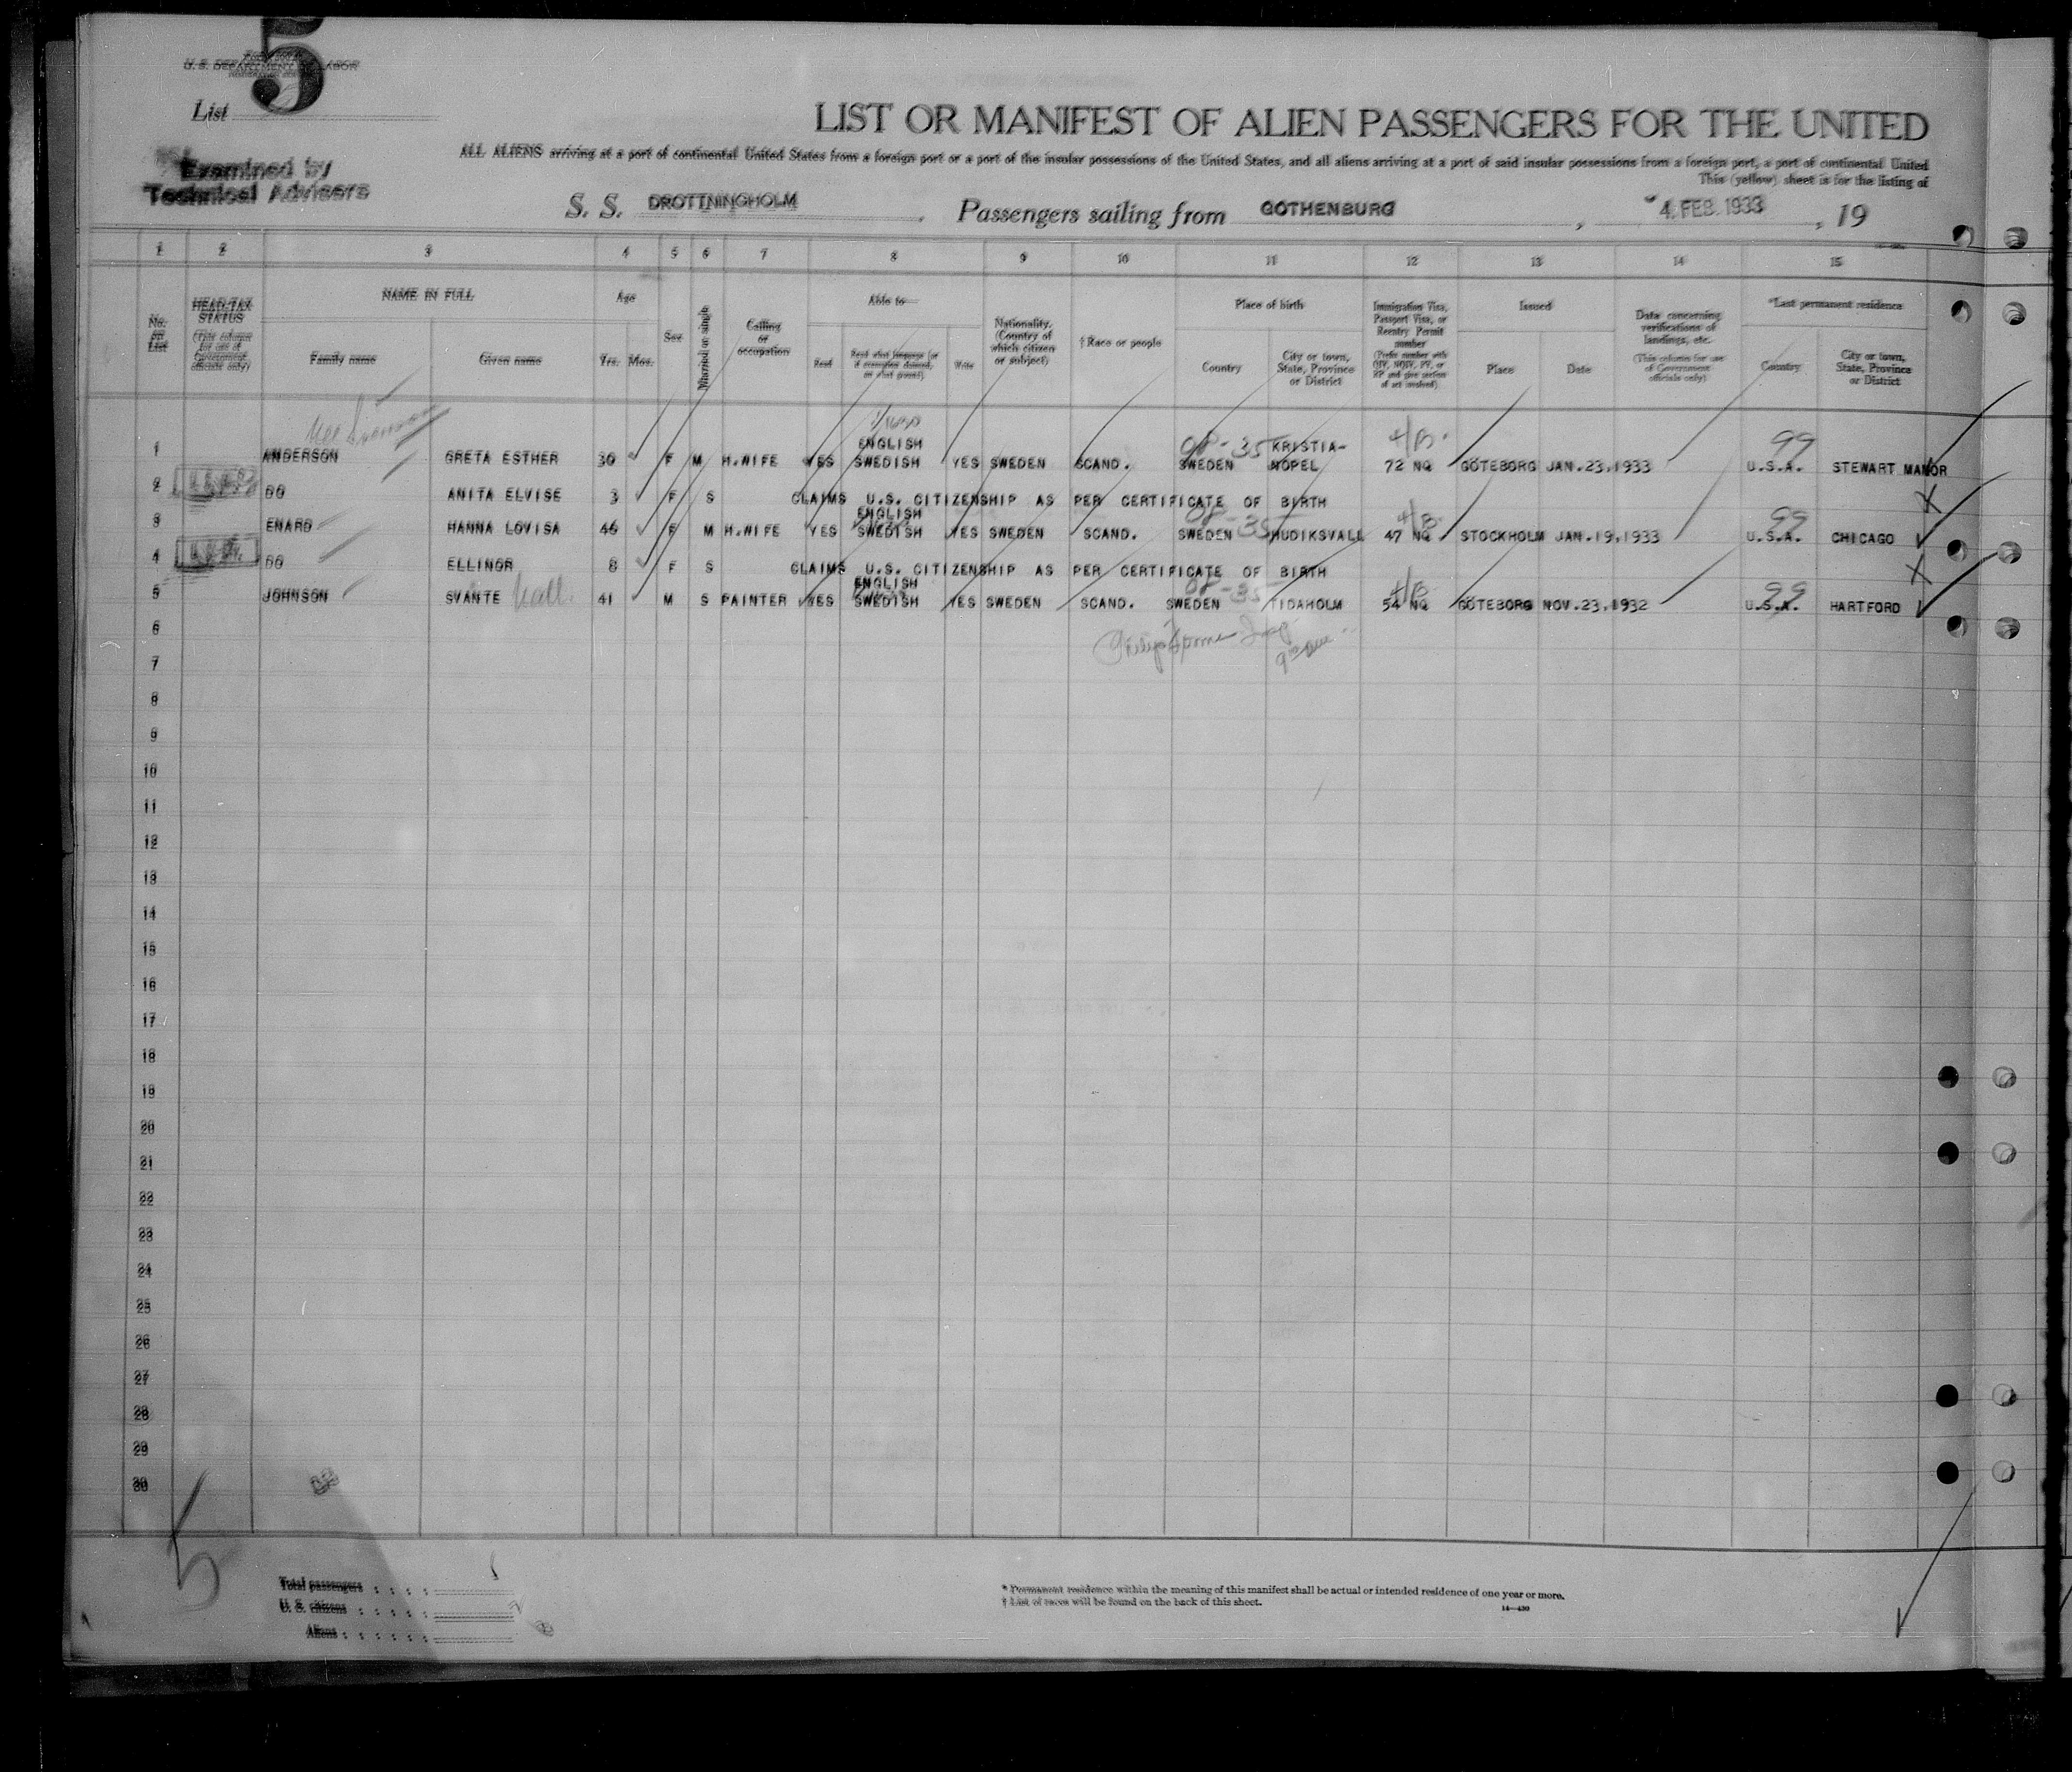 5
U. S. DEPARTMENT OF LABOR
List
LIST OR MANIFEST OF ALIEN PASSENGERS FOR THE UNITED
ALL ALIENS arriving at a port of continental United States from a foreign port or a port of the insular possessions of the United States, and all aliens arriving at a port of said insular possessions from a foreign port, a port of continental United
This (yellow) sheet is for the listing of
Examined by
Technical Advisers
S. S. DROTTNINGHOLM, Passengers sailing from GOTHENBURG, 4. FEB. 1933, 19
1 2 3 4 5 6 7 8 9 10 11 12 13 14 15
No. on List
HEAD-TAX STATUS (This column for use of Government officials only)
NAME IN FULL
Family name Given name
Age
Yrs. Mos.
Sex
Married or single
Calling or occupation
Able to—
Read Read what language (or if exemption claimed, on what ground) Write
Nationality. (Country of which citizen or subject)
† Race or people
Place of birth
Country City or town, State, Province or District
Immigration Visa, Passport Visa, or Reentry Permit number (Prefix number with QIV, NQIV, PV, or RP and give section of act involved)
Issued
Place Date
Data concerning verifications of landings, etc. (This column for use of Government officials only)
*Last permanent residence
Country City or town, State, Province or District
1 ANDERSON GRETA ESTHER 30 F M H.WIFE YES ENGLISH SWEDISH YES SWEDEN SCAND. SWEDEN 35 KRISTIA-NOPEL 4/B. 72 NQ GÖTEBORG JAN.23,1933 99 U.S.A. STEWART MANOR
2 DO ANITA ELVISE 3 F S CLAIMS U.S. CITIZENSHIP AS PER CERTIFICATE OF BIRTH X
3 ENARD HANNA LOVISA 46 F M H.WIFE YES ENGLISH SWEDISH YES SWEDEN SCAND. SWEDEN 35 HUDIKSVALL 4/B. 47 NQ STOCKHOLM JAN.19,1933 99 U.S.A. CHICAGO
4 DO ELLINOR 8 F S CLAIMS U.S. CITIZENSHIP AS PER CERTIFICATE OF BIRTH X
5 JOHNSON SVANTE 41 M S PAINTER YES ENGLISH SWEDISH YES SWEDEN SCAND. SWEDEN 35 TIDAHOLM 4/B 54 NQ GÖTEBORG NOV.23,1932 99 U.S.A. HARTFORD
6
7
8
9
10
11
12
13
14
15
16
17
18
19
20
21
22
23
24
25
26
27
28
29
30
5
Total passengers
U. S. citizens
Aliens
* Permanent residence within the meaning of this manifest shall be actual or intended residence of one year or more.
† List of races will be found on the back of this sheet.
14—430